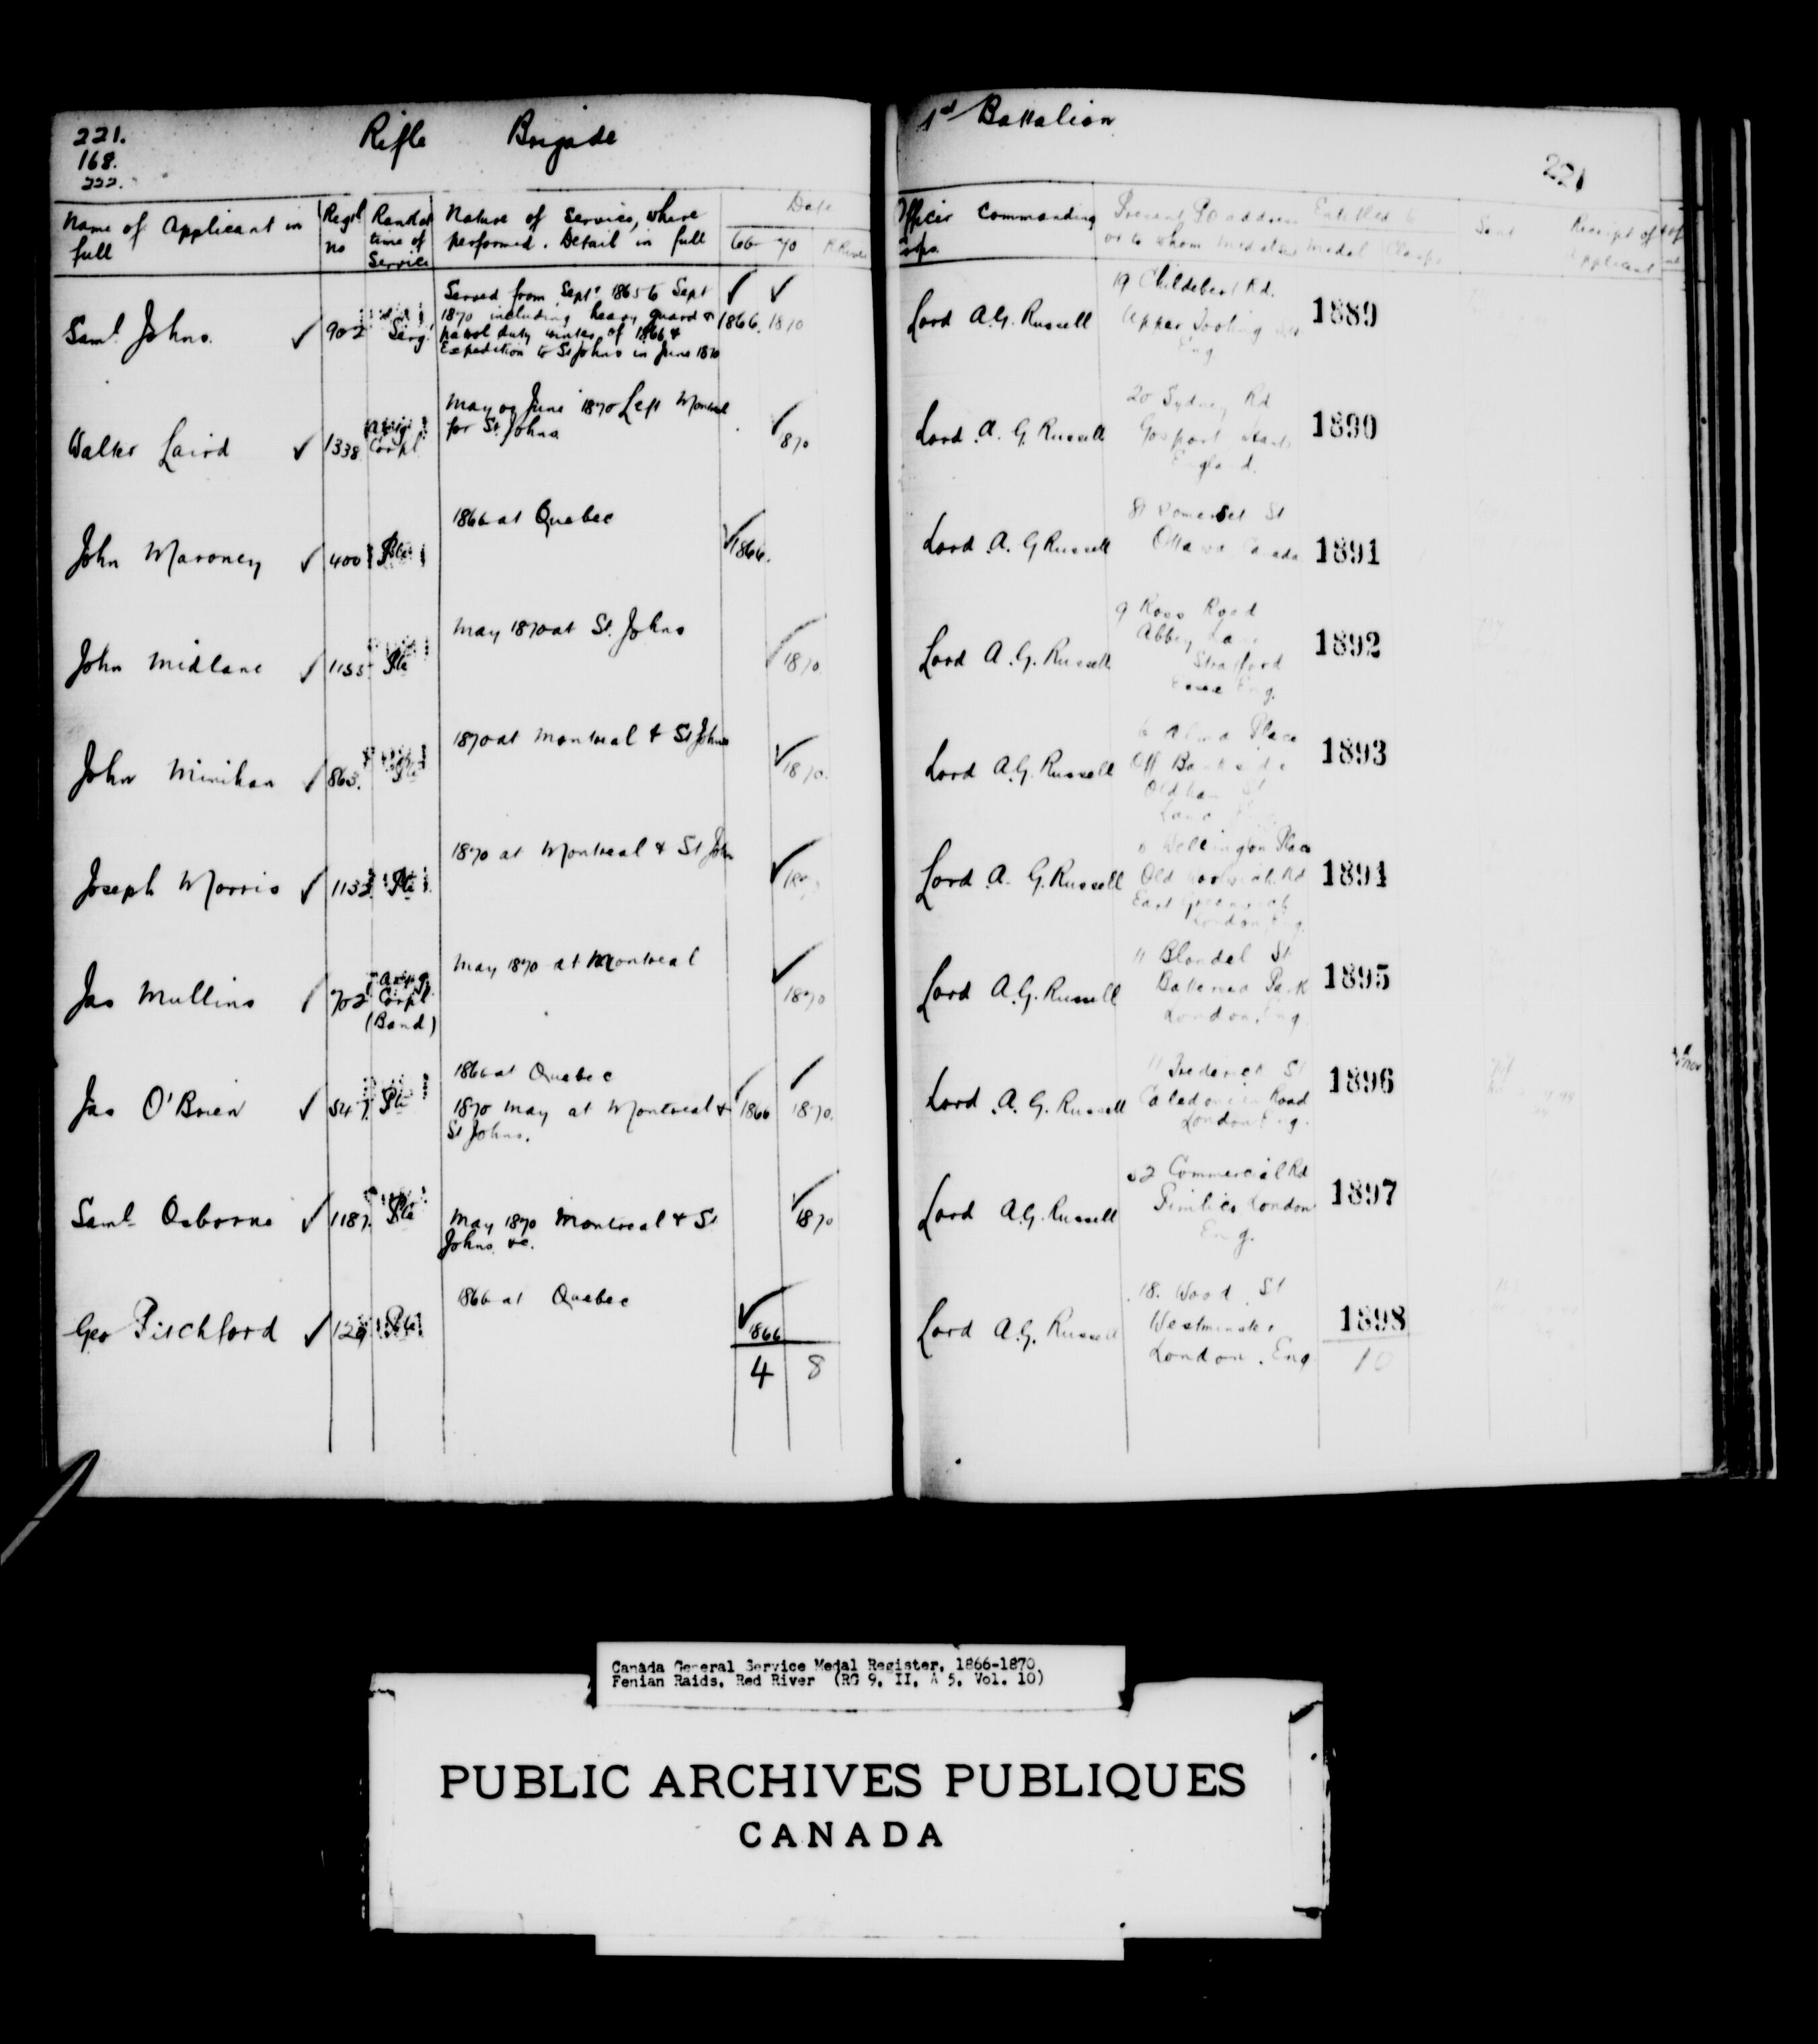 221.
168.
222.
Rifle Brigade
Name of Applicant in full
Regtl no
Rank at time of Service
Nature of Service, where performed. Detail in full
Date
66 70 R River
Saml Johns. 902 Serg.
Served from Sept. 1865 to Sept
1870 including heavy guard &
patrol duty winter of 1866 &
Expedition to St Johns in June 1870
1866. 1870
Walter Laird 1338 Corpl
May or June 1870 Left Montreal
for St. Johns
1870
John Maroney 400 Pte
1866 at Quebec
1866.
John Midlane 1155 Pte
May 1870 at St. Johns
1870.
John Minihan 863. Pte
1870 at Montreal & St Johns
1870.
Joseph Morris 1132 Pte
1870 at Montreal & St John
Jas Mullins 702 Corpl
(Band)
May 1870 at Montreal
1870
Jas O'Brien 547. Pte
1866 at Quebec
1870 May at Montreal &
St Johns.
1866 1870.
Saml Osborne 1187. Pte
May 1870 Montreal & St
Johns &c.
1870
Geo Pitchford Pte
1866 at Quebec
1866
4 8
1st Battalion
221
Officer Commanding
Corps
Present PO address
or to whom Medal
Entitled to
Medal Clasps
Sent
Receipt of
Applicant
Lord A.G. Russell
19 Childebert Rd.
Upper Tooting
Eng
1889
Lord A. G. Russell
20 Sydney Rd
Gosport Hants
England.
1890
Lord A. G Russell
Somerset St
Ottawa Canada
1891
Lord A. G. Russell
9 Ross Road
Abbey Lane
Stratford
Essex Eng.
1892
Lord A.G. Russell
6 Alma Place
Off Bankside
Oldham St
1893
Lord A. G. Russell
Wellington Place
Old Woolwich Rd
East Greenwich
London Eng.
1894
Lord A.G. Russell
11 Blondel St
Battersea Park
London, Eng
1895
Lord A. G. Russell
11 Frederick St
Caledonian Road
London Eng.
1896
Lord A.G. Russell
52 Commercial Rd
Pimlico London
Eng.
1897
Lord A.G. Russell
18. Wood St
Westminster
London. Eng
1898
10
Canada General Service Medal Register, 1866-1870.
Fenian Raids, Red River (RG 9, II, A 5, Vol. 10)
PUBLIC ARCHIVES PUBLIQUES
CANADA